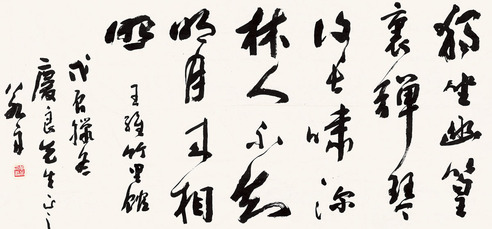 獨坐幽篁
裏彈琴
復長嘯深
林人不知
明月來相
照
王維竹里館
戊臘冬
慶良先生正之